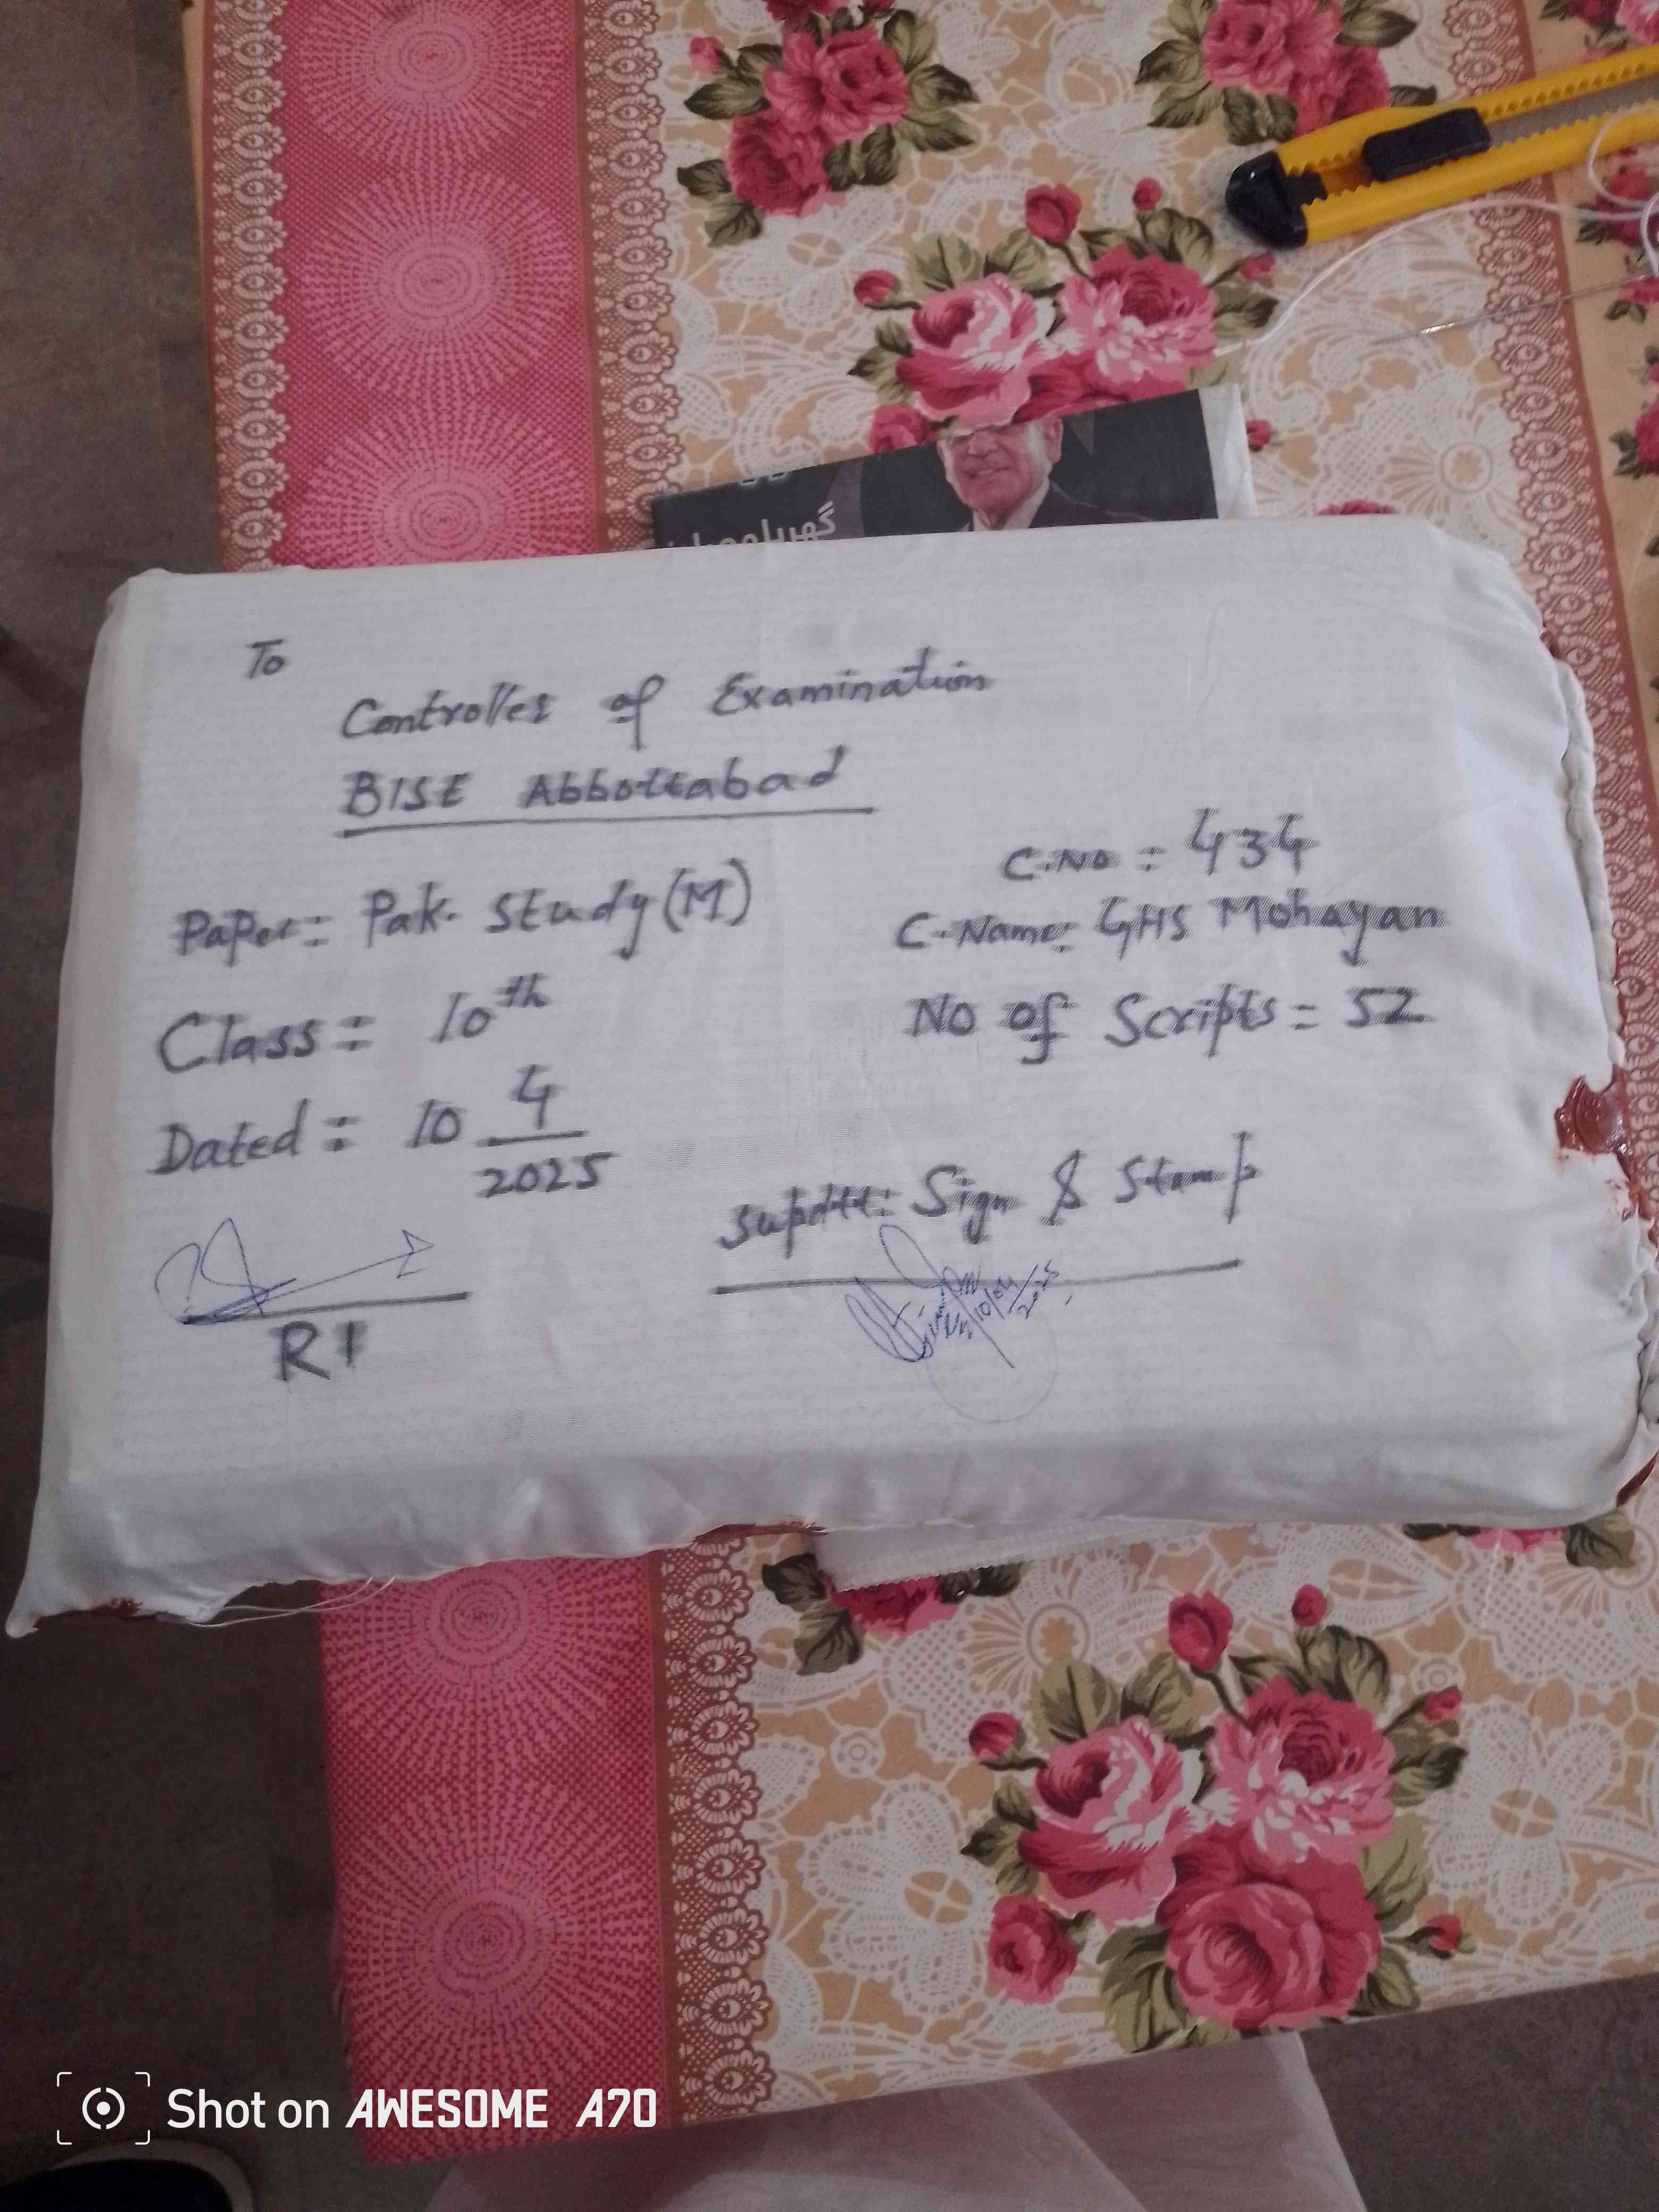 To
Controller of Examination
BISE Abbottabad
Paper:- Pak. Study (M)
Class:- 10th
Dated:- 10 4/2025
C.No:- 434
C.Name:- GHS Mohayan
No of Scripts = 52
Supdtt: Sign & Stamp
10/04/2025
RI
گھریلو
Shot on AWESOME A70